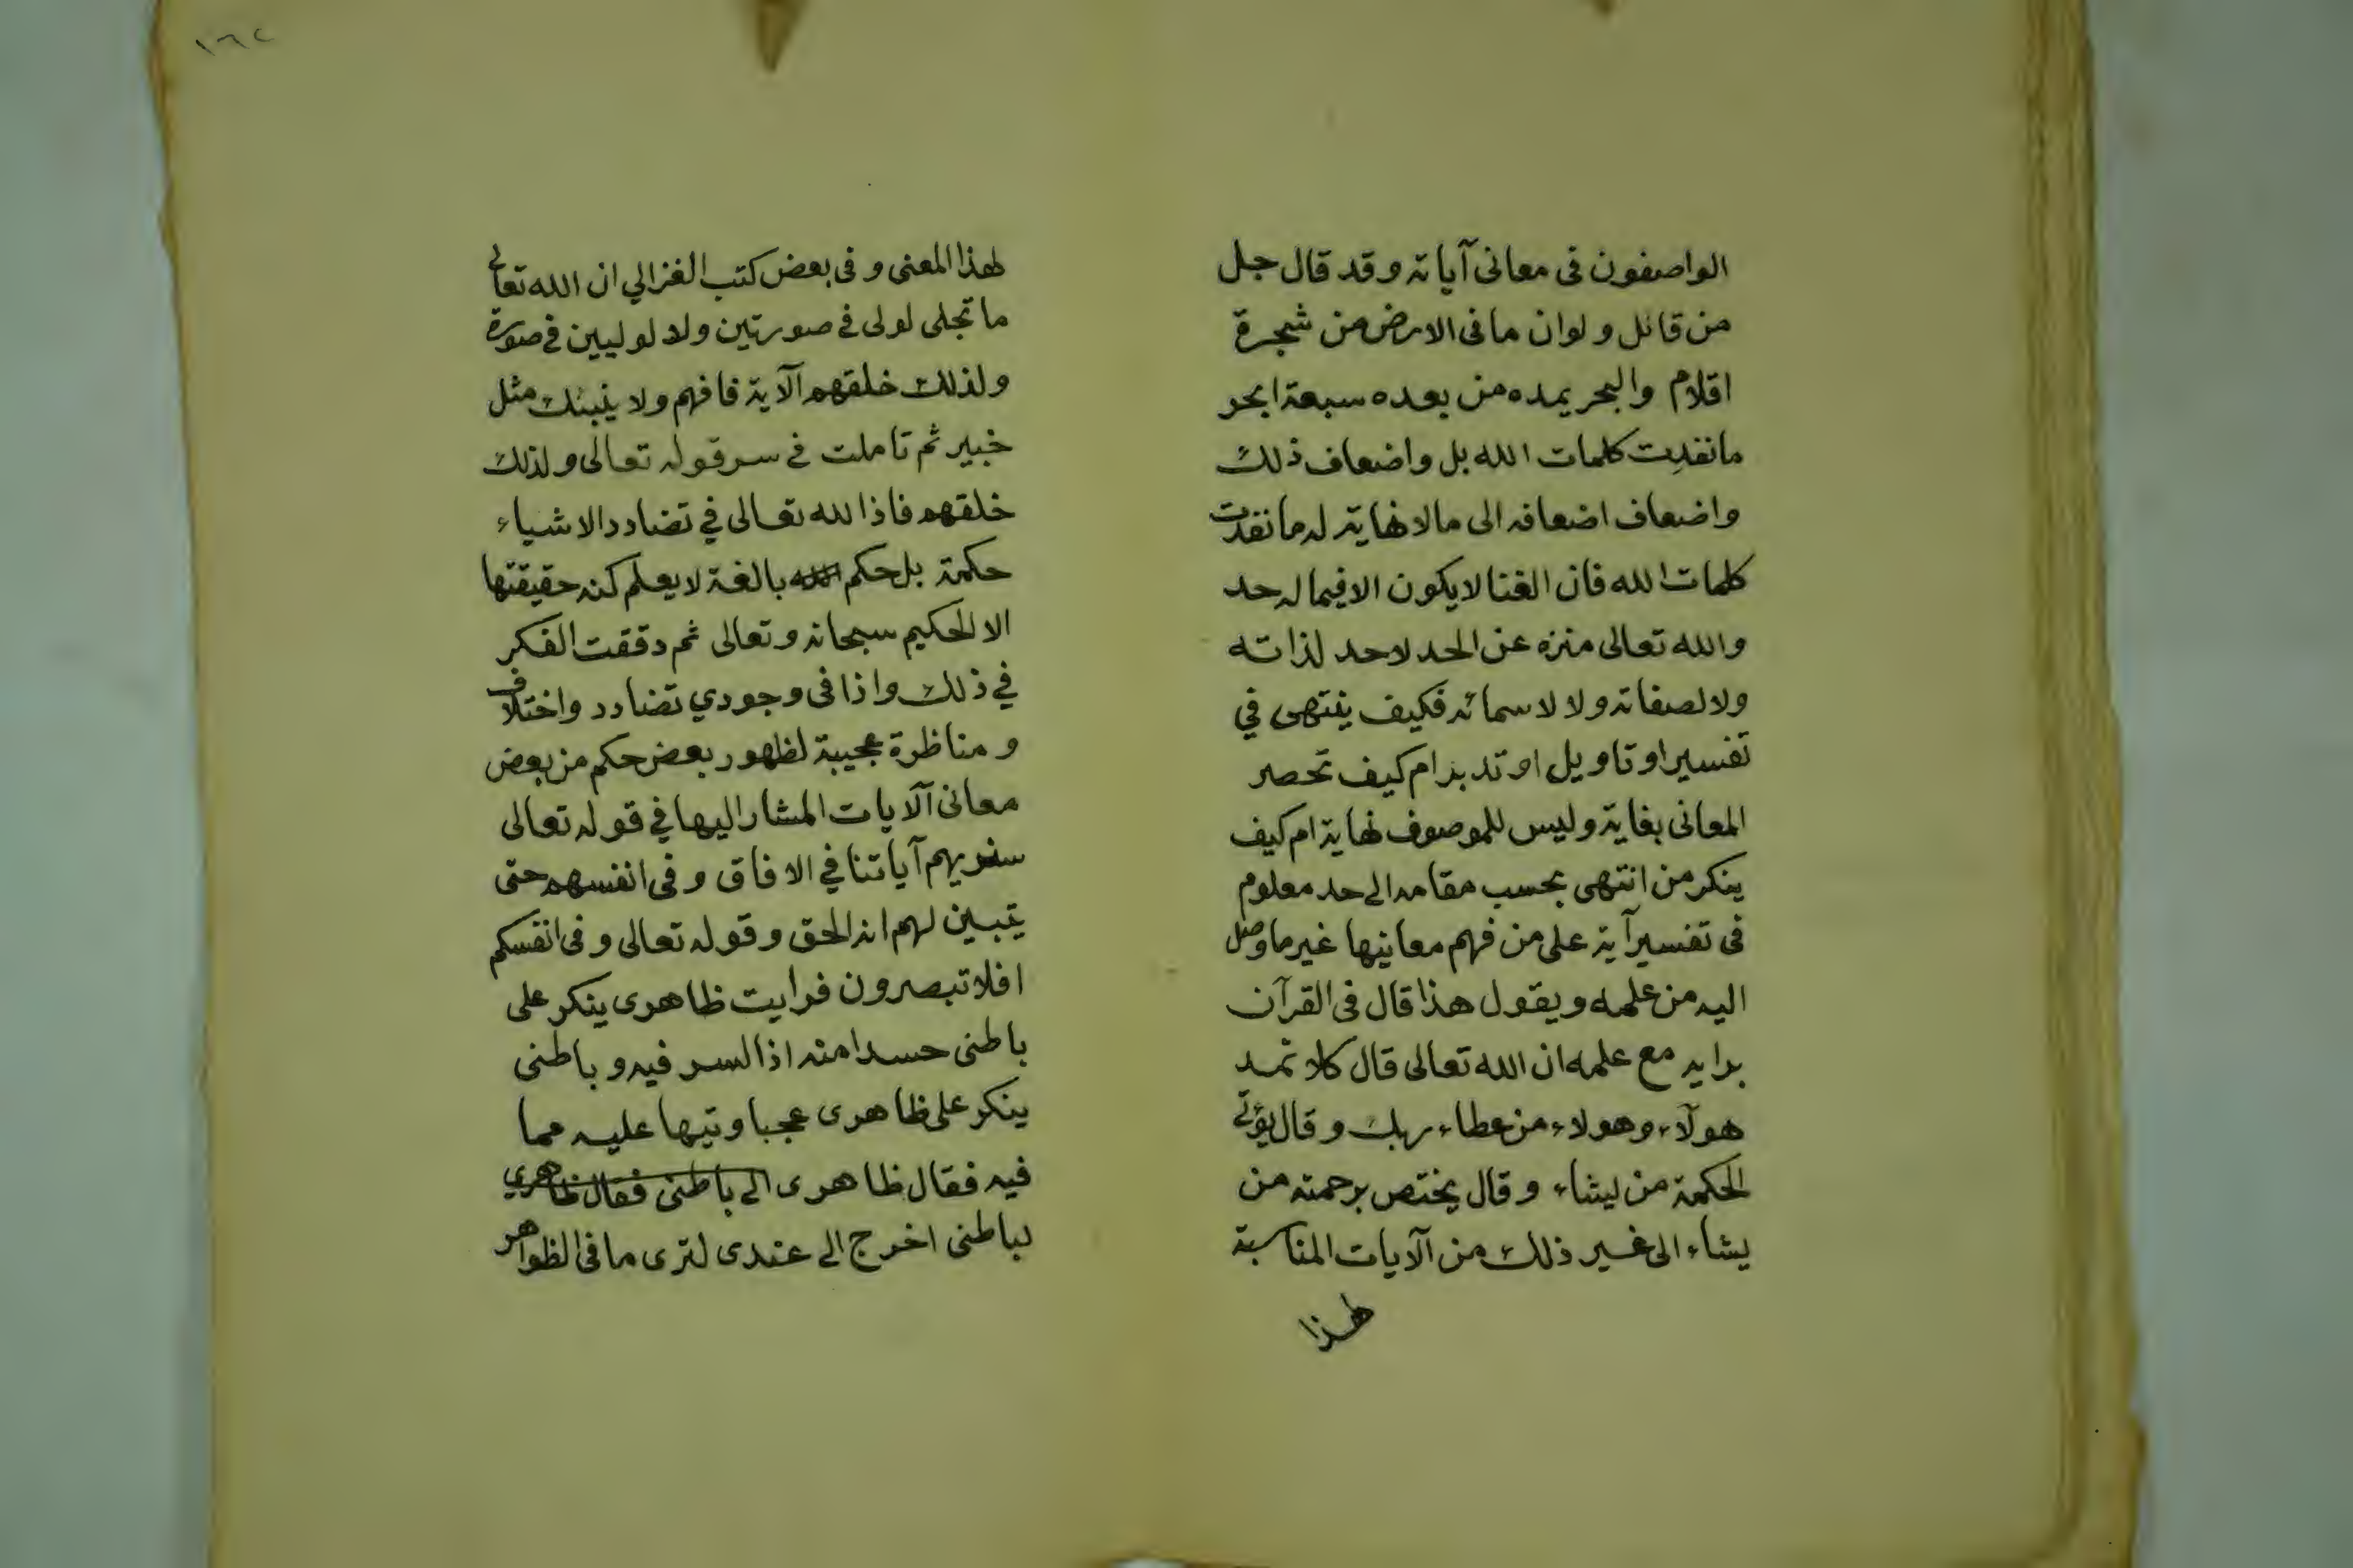 الواصفون فى معانى آياته وقد قال جل
من قائل ولوان مافى الارض من شجرة
اقلام والبحر يمده من بعده سبعة ابحر
مانفدت كلمات الله بل واضعاف ذلك
واضعاف اضعافه الى مالا نهاية له مانفدت
كلمات الله فان الفنا لايكون الا فيما له حد
والله تعالى منزه عن الحد لاحد لذاته
ولا لصفاته ولا لاسمائه فكيف ينتهى في
تفسير او تاويل او تدبر ام كيف تحصر
المعانى بغاية وليس للموصوف نهاية ام كيف
ينكر من انتهى بحسب مقامه الى حد معلوم
فى تفسير آية على من فهم معانيها غير ما وصل
اليه من علمه ويقول هذا قال فى القرآن
برايه مع علمه ان الله تعالى قال كلا نمد
هولآء وهولاء من عطاء ربك وقال يؤتى
الحكمة من يشاء وقال يختص برحمته من
يشاء الى غير ذلك من الآيات المناسبة
لهذا
١٦٢
لهذا المعنى وفى بعض كتب الغزالي ان الله تعالى
ما تجلى لولى فى صورتين ولا لوليين فى صورة
ولذلك خلقهم الآية فافهم ولا ينبئك مثل
خبير ثم تاملت فى سر قوله تعالى ولذلك
خلقهم فاذا لله تعالى في تضادد الاشياء
حكمة بل حكم بالغة لايعلم كنه حقيقتها
الا الحكيم سبحانه وتعالى ثم دققت الفكر
في ذلك واذا فى وجودي تضادد واختلاف
ومناظرة عجيبة لظهور بعض حكم من بعض
معانى الآيات المشار اليها في قوله تعالى
سنريهم آياتنا في الافاق وفى انفسهم حتى
يتبين لهم انه الحق وقوله تعالى وفى انفسكم
افلا تبصرون فرايت ظاهرى ينكر على
باطنى حسدا منه اذا السر فيه وباطنى
ينكر على ظاهرى عجبا وتيها عليه مما
فيه فقال ظاهرى الى باطنى فقال ظاهري
لباطنى اخرج الى عندى لترى مافى الظواهر